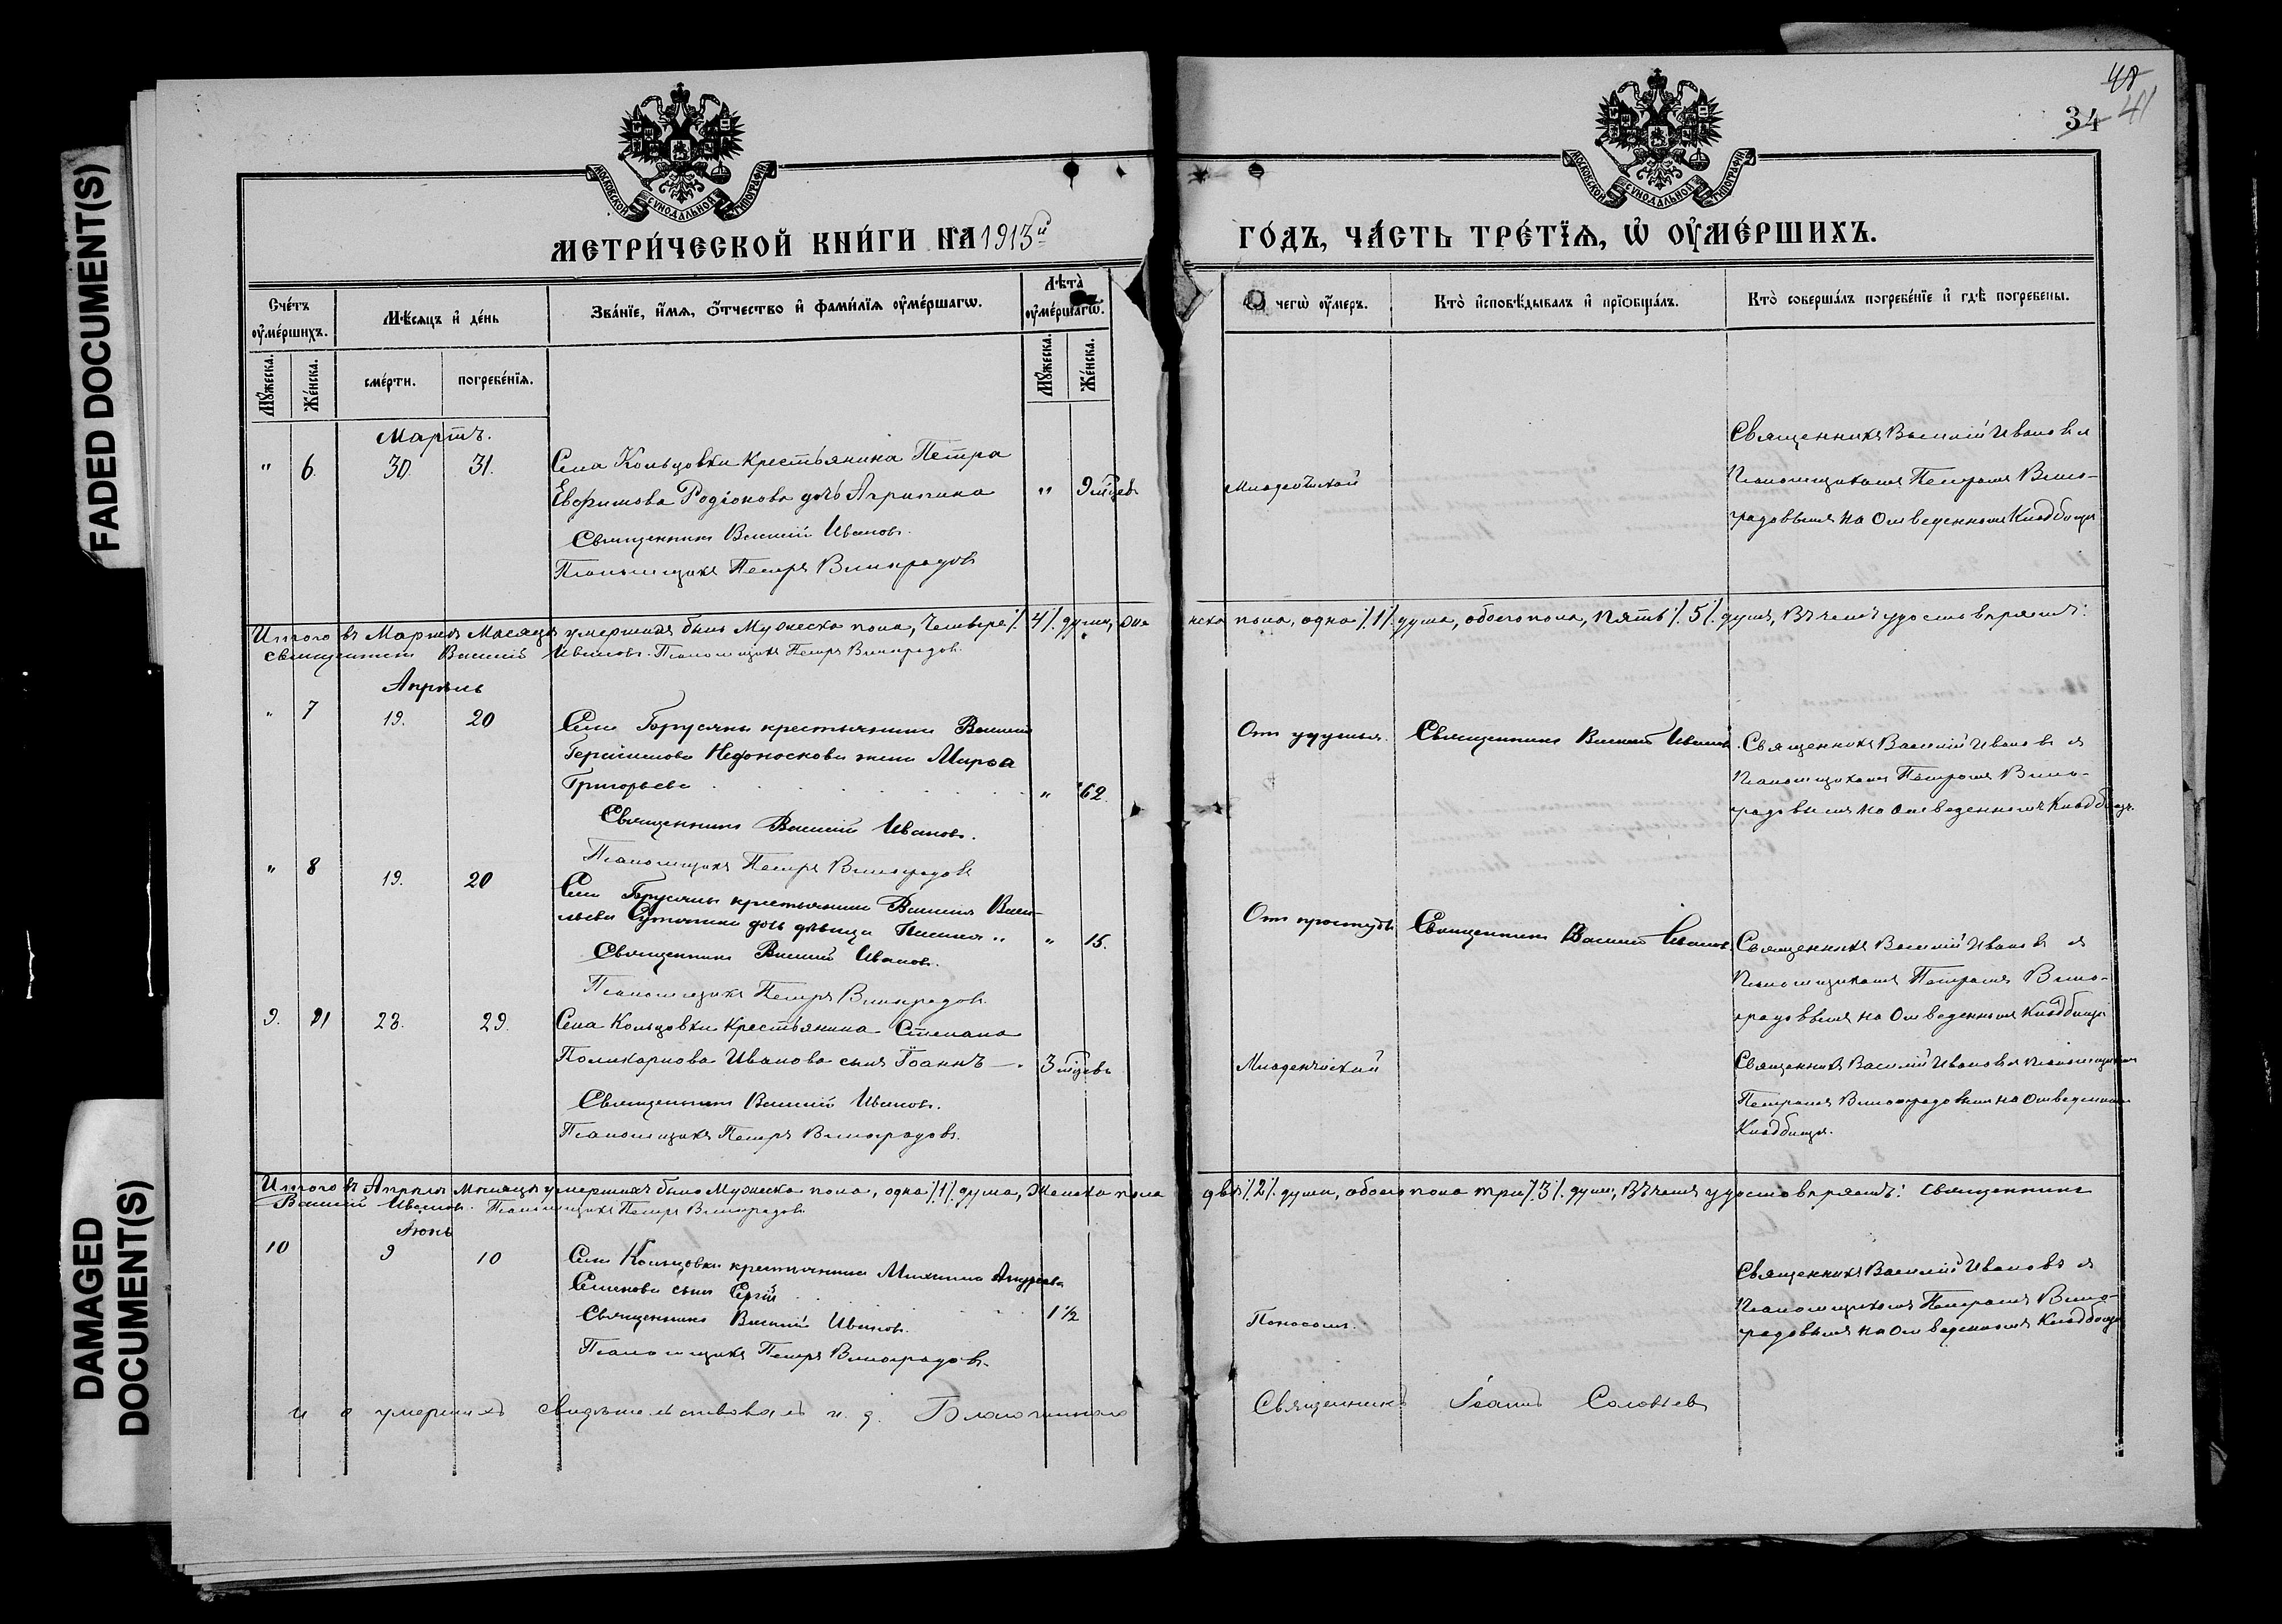 FADED DOCUMENT(S)
DAMAGED
DOCUMENT(S)
МОСКОВСКОЙ СѴНОДАЛЬНОЙ ТИПОГРАФІИ
МОСКОВСКОЙ СѴНОДАЛЬНОЙ ТИПОГРАФІИ
34 41
МЕТРИ́ЧЕСКОЙ КНИ́ГИ НА 1913й
ГО́ДЪ, ЧА́СТЬ ТРЕ́ТЇѦ, Ѽ ОУ҆МЕ́РШИХЪ.
Сче́тъ оу҆ме́ршихъ.
Мꙋ́жеска. Же́нска.
Мѣ́сяцъ и҆ де́нь
сме́рти. погребе́нїѧ.
Зва́нїе, и҆́мѧ, ѻ҆́тчество и҆ фами́лїѧ оу҆ме́ршагѡ.
Лѣ̀та оу҆ме́ршагѡ.
Мꙋ́жеска. Же́нска.
чегѡ̀ оу҆́меръ.
Кто̀ и҆сповѣ́дывалъ и҆ прїѡбща́лъ.
Кто̀ соверша́лъ погребе́нїе и҆ гдѣ̀ погребены.
Мартъ.
" 6. 30 31.
Села Кольцовки крестьянина Петра
Евфимова Родіонова дочь Агрипина " 9 мѣсяцевъ
Священникъ Василій Ивановъ.
Псаломщикъ Петръ Виноградовъ
Младенческой
Священникъ Василій Ивановъ и
Псаломщикомъ Петромъ Вино-
градовымъ на отведенномъ Кладбищѣ
Итого въ Мартѣ Мѣсяцѣ умершихъ было Мужеска пола, Четыре /4/ души, Же
нска пола, одна /1/ душа, обоего пола, пять /5/ душъ, Въ чемъ удостовѣряемъ:
Священникъ Василій Ивановъ. Псаломщикъ Петръ Виноградовъ.
Апрѣль
" 7 19. 20
Села крестьянина Василія
Герасимова Недоноскова жена Марѳа
Григорьева " 62.
Священникъ Василій Ивановъ.
Псаломщикъ Петръ Виноградовъ
Отъ удушья. Священникъ Василій Ивановъ.
Священникъ Василій Ивановъ и
Псаломщикомъ Петромъ Вино-
градовымъ на отведенномъ Кладбищѣ
" 8 19. 20
Села крестьянина Василія Васи-
льева дочь дѣвица " 15.
Священникъ Василій Ивановъ.
Псаломщикъ Петръ Виноградовъ.
Отъ простуды Священникъ Василій Ивановъ.
Священникъ Василій Ивановъ и
Псаломщикомъ Петромъ Вино-
градовымъ на Отведенномъ Кладбищѣ
9. 28. 29.
Села Кольцовки крестьянина Степана
Поликарпова Иванова сынъ Іоаннъ 3 мѣсяцевъ
Священникъ Василій Ивановъ.
Псаломщикъ Петръ Виноградовъ.
Младенческій
Священникъ Василій Ивановъ и псаломщикомъ
Петромъ Виноградовымъ на отведенномъ
Кладбищѣ.
Итого въ Апрѣлѣ Мѣсяцѣ умершихъ было Мужеска пола, одна /1/ душа, Женска пола
двѣ /2/ души, обоего пола три /3/ души, Въ чемъ удостовѣряемъ: Священникъ
Василій Ивановъ. Псаломщикъ Петръ Виноградовъ
Іюнь
10 9 10
Села Кольцовки крестьянина Михаила Андреева
Семенова сынъ Сергій 1 1/2
Священникъ Василій Ивановъ.
Псаломщикъ Петръ Виноградовъ.
Поносомъ.
Священникъ Василій Ивановъ и
Псаломщикомъ Петромъ Вино-
градовымъ на Отведенномъ Кладбищѣ
и о умершихъ свидѣтельствовалъ и. д. Благочиннаго
Священникъ Іоаннъ Соловьевъ